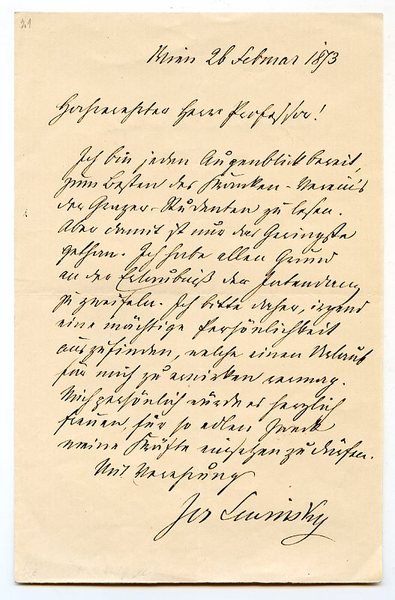 21
Wien 26 Februar 1873
Hochverehrter Herr Professor!
Ich bin jeden Augenblick bereit,
zum Besten des Kranken-Vereins
der Grazer-Studenten zu lesen.
Aber damit ist nur das Geringste
gethan. Ich habe allen Grund
an der Erlaubniß der Intendanz
zu zweifeln. Ich bitte daher, irgend
eine mächtige Persönlichkeit
aufzufinden, welche einen Urlaub
für mich zu erwirken vermag.
Mich persönlich würde es herzlich
freuen, für so edlen Zweck
meine Kräfte einsetzen zu dürfen.
Mit Verehrung
Jos Lewinsky